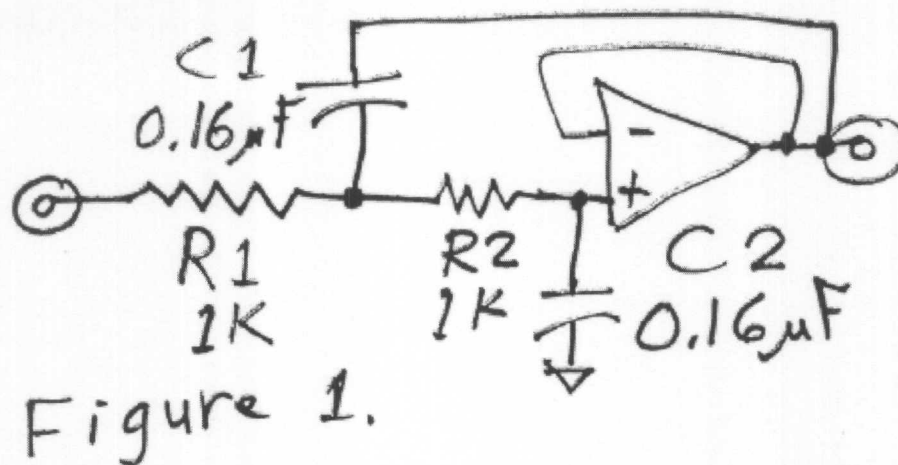 C1
0.16µF
-
+
R1
1K
R2
1K
C2
0.16µF
Figure 1.